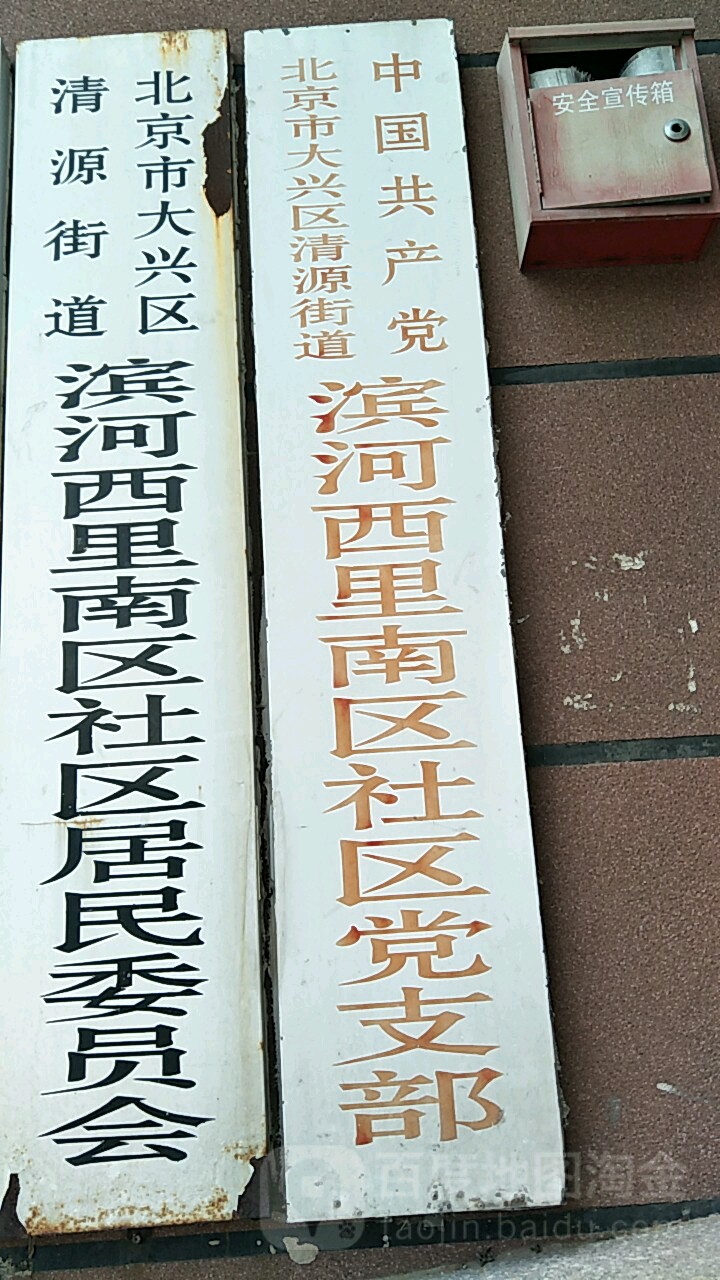 北京市大兴区
清源街道
滨河西里南区社区居民委员会
中国共产党
北京市大兴区清源街道
滨河西里南区社区党支部
安全宣传箱
百度地图淘金
taojin.baidu.com